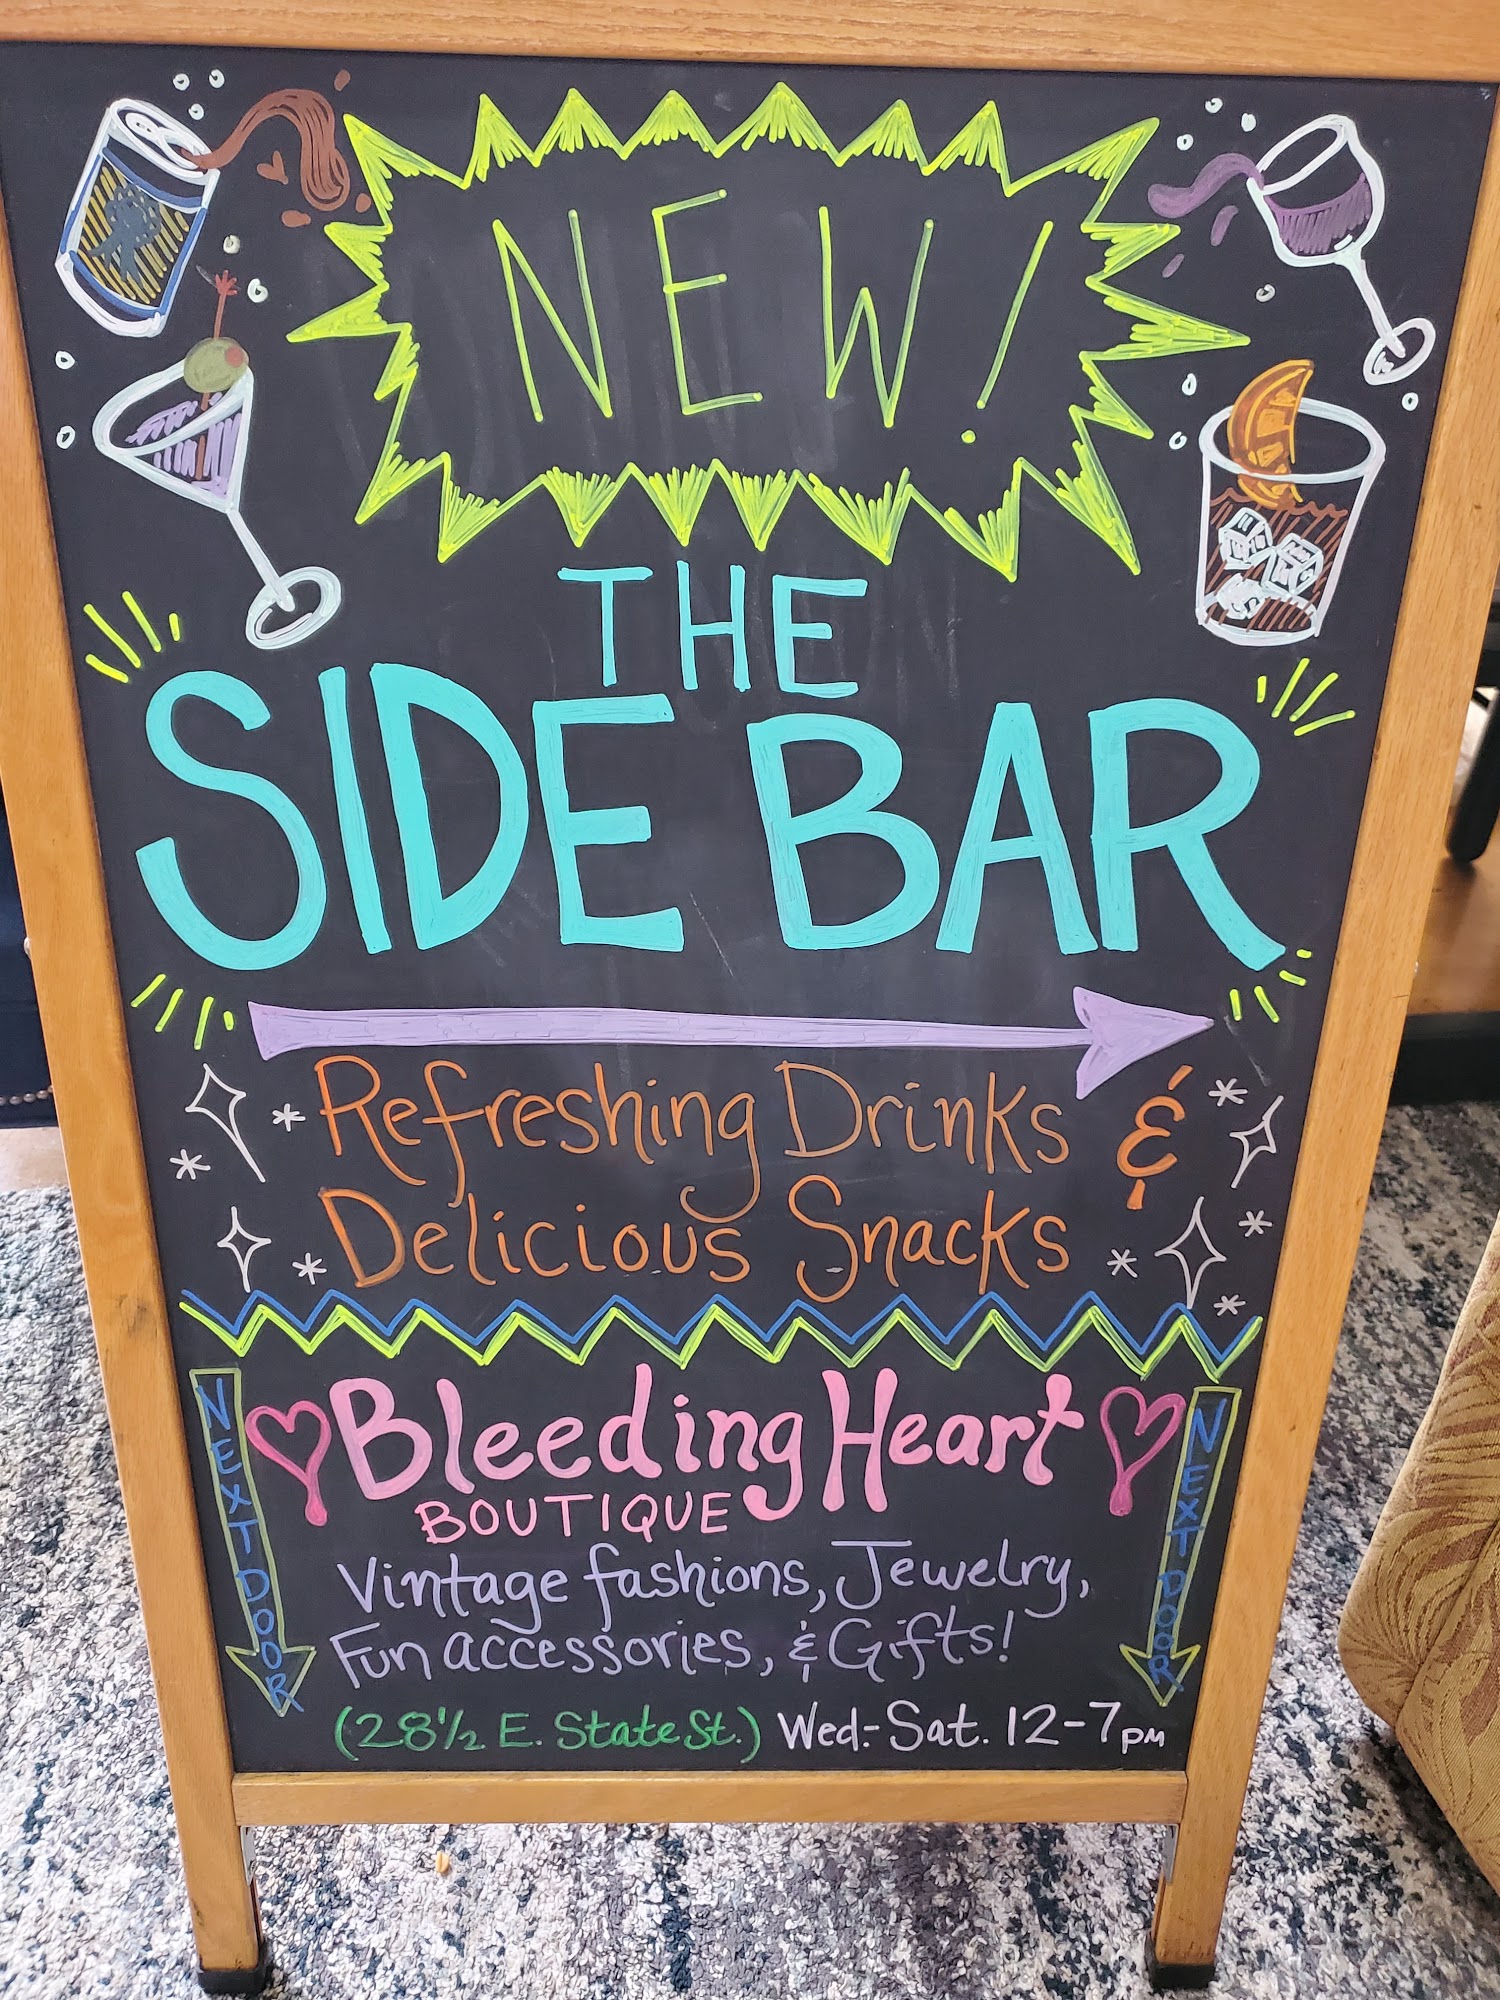 NEW!
THE
SIDE BAR
Refreshing Drinks &
Delicious Snacks
NEXT DOOR
Bleeding Heart
BOUTIQUE
Vintage fashions, Jewelry,
Fun accessories, & Gifts!
(28 1/2 E. State St.) Wed.-Sat. 12-7pm
NEXT DOOR